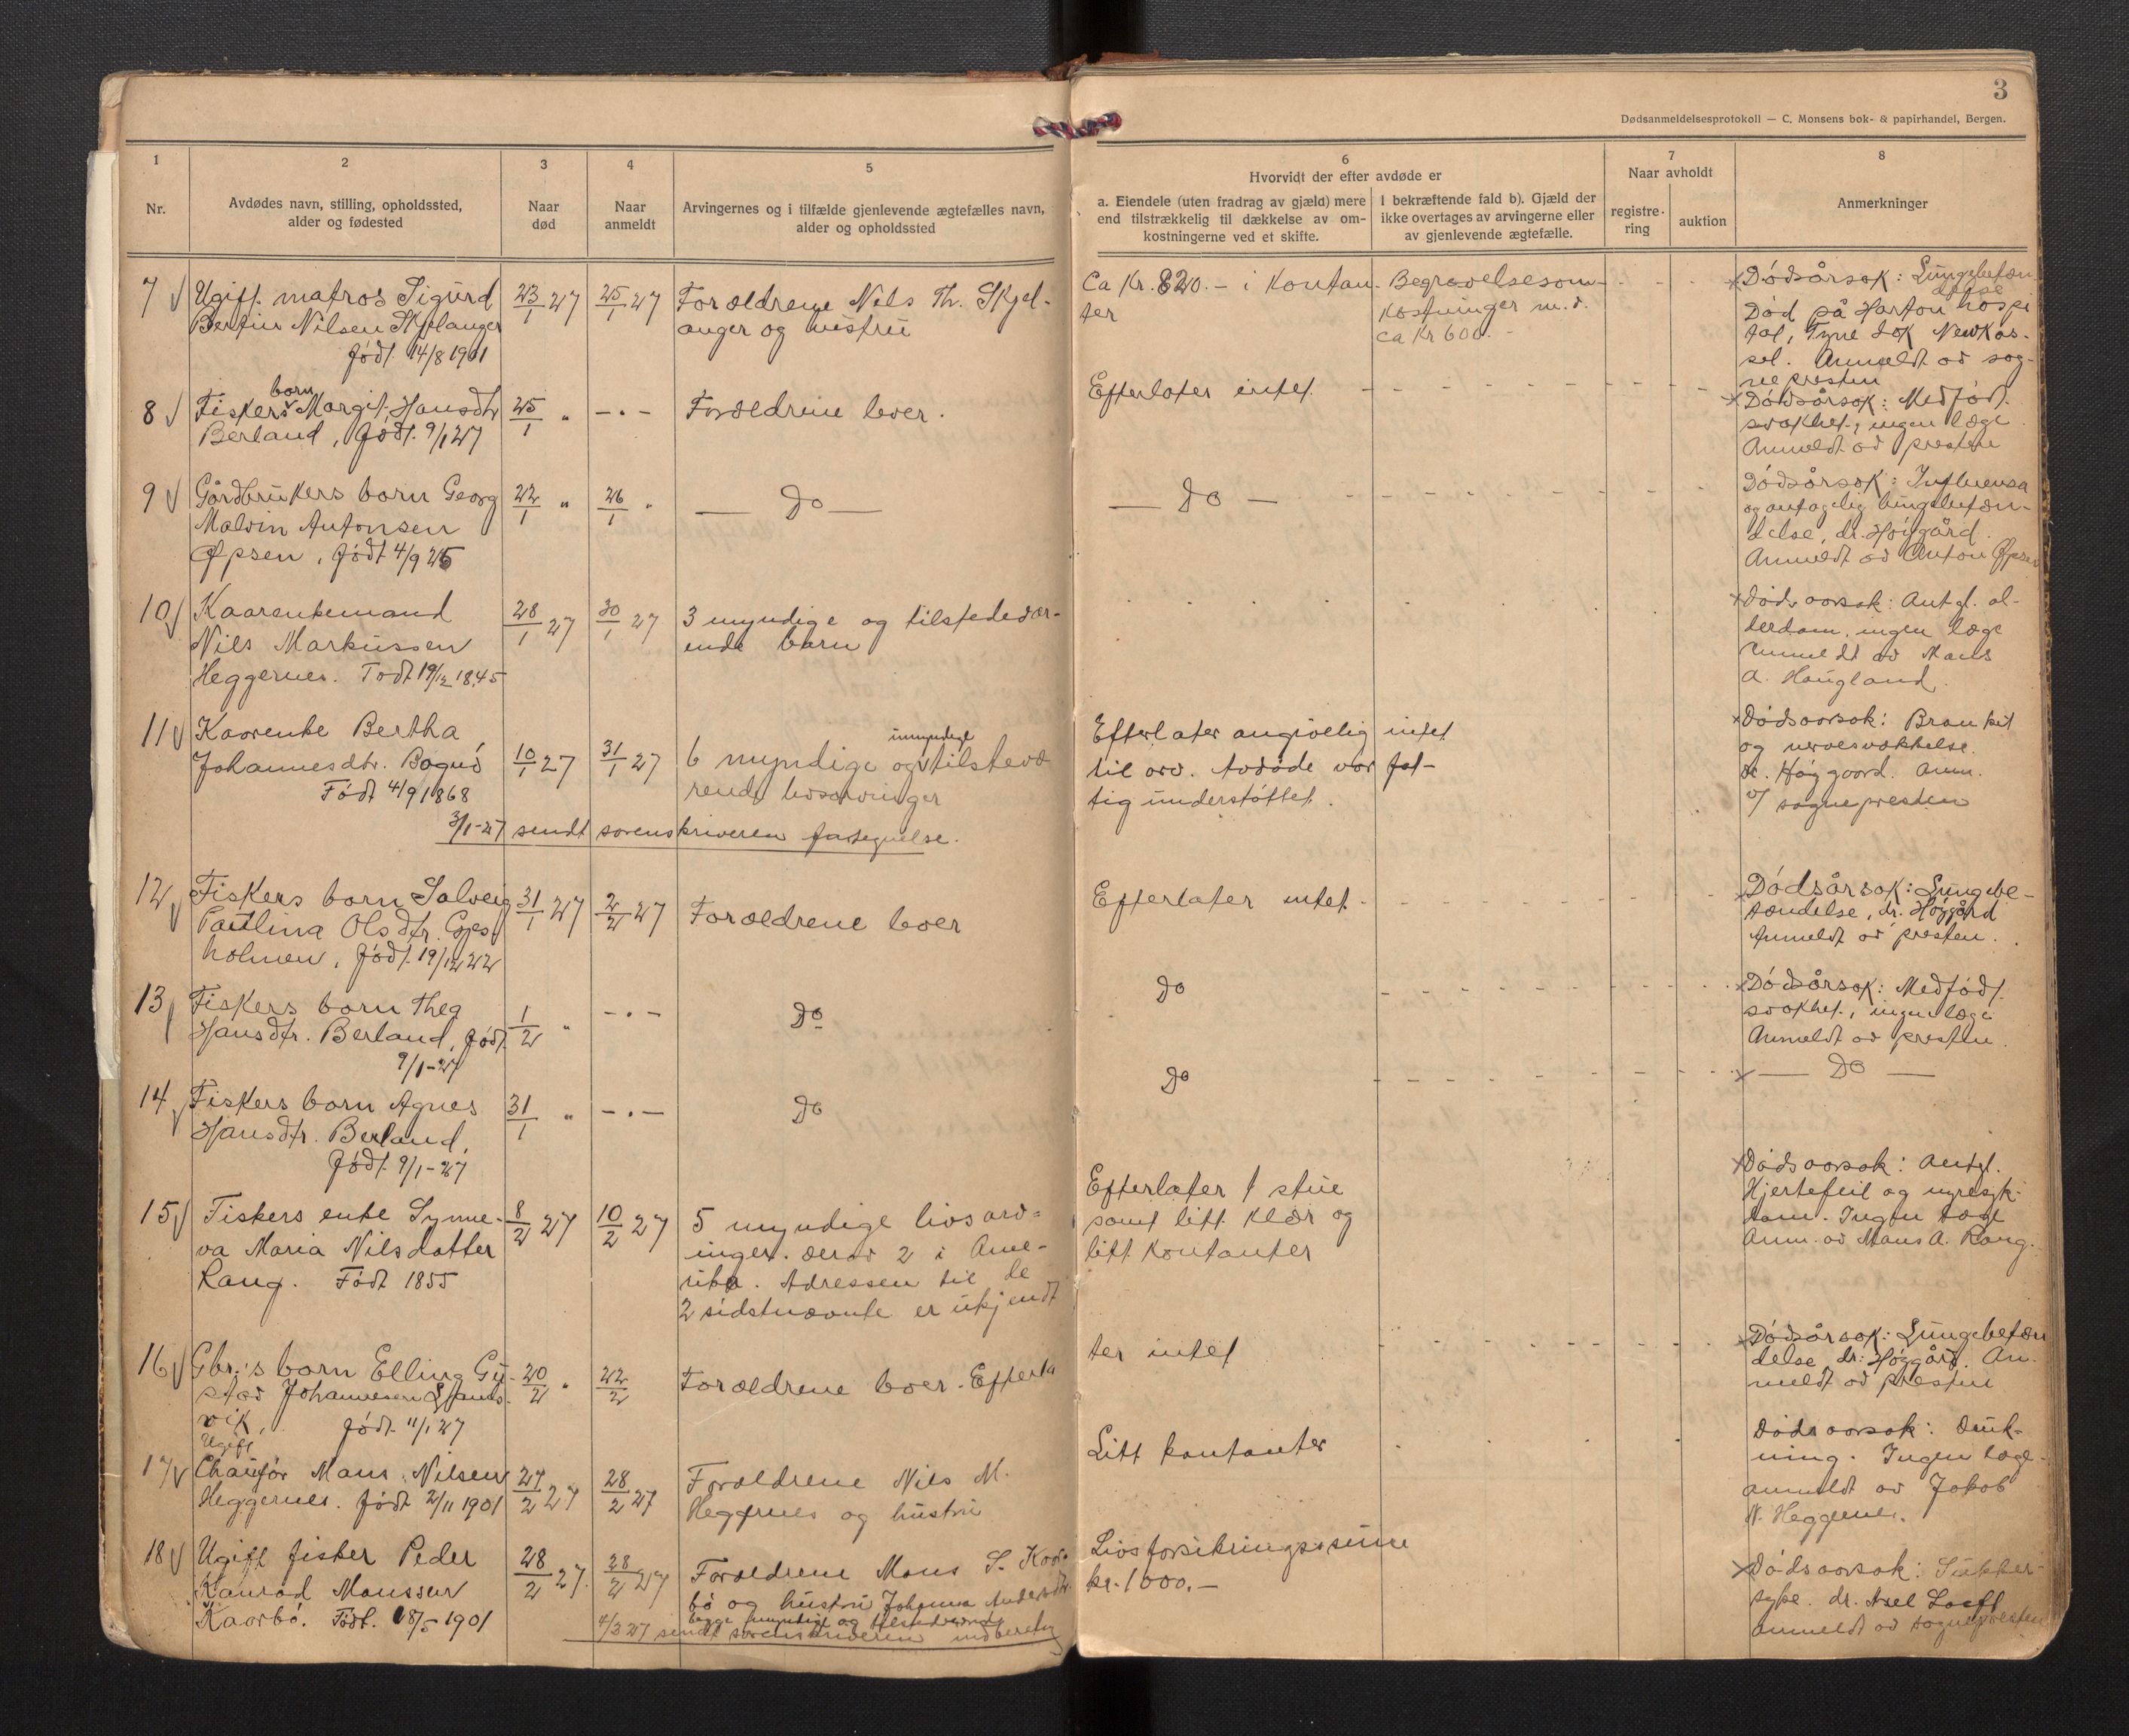 3
Dødsanmeldelsesprotokoll — C. Monsens bok- & papirhandel, Bergen.
1
Nr.
2
Avdødes navn, stilling, opholdssted,
alder og fødested
3
Naar
død
4
Naar
anmeldt
5
Arvingernes og i tilfælde gjenlevende ægtefælles navn,
alder og opholdssted
6
Hvorvidt der efter avdøde er
a. Eiendele (uten fradrag av gjæld) mere
end tilstrækkelig til dækkelse av om-
kostningerne ved et skifte.
I bekræftende fald b). Gjæld der
ikke overtages av arvingerne eller
av gjenlevende ægtefælle.
7
Naar avholdt
registre-
ring
auktion
8
Anmerkninger
7
Ugift matros Sigurd
Bertin Nilsen Skjelanger
født 14/8 1901
23/1 27
25/1 27
Forældrene Nils Th. Skjel-
anger og hustru
Ca Kr. 820.- i kontan-
ter
Begravelsesom-
kostninger m.v.
ca Kr 600.-
Dødsårsak: Lungebetæn
delse
Død på Harton hospi
tal, Tyne Dok Newkas-
sel. Anmeldt av sog-
nepresten
8
Fiskers barn Margit Hansdtr
Berland, født 9/1 27
25/1 "
- . -
Forældrene lever.
Efterlater intet
Dødsårsak: Medfødt
svakhet, ingen læge
Anmeldt av presten
9
Gårdbrukers barn Georg
Malvin Antonsen
Øpsen, født 4/9 25
22/1 "
26/1 "
— Do —
— Do —
Dødsårsak: Influensa
og antagelig lungebetæn-
delse, dr. Høygård
Anmeldt av Anton Øpsen
10
Kaarenkemand
Nils Markussen
Heggernes. Født 19/12 1845
28/1 27
30/1 27
3 myndige og tilstedevær-
ende barn
Dødsaarsak: Antgl. al-
derdom, ingen læge
Anmeldt av Mons
A. Haugland.
11
Kaarenke Bertha
Johannesdtr. Bognø
Født 4/9 1868
10/1 27
31/1 27
6 myndige og umyndige tilstevæ
rende livsarvinger
Efterlater angivelig intet
til arv. Avdøde var fat-
tig understøttet.
Dødsaarsak: Bronkit
og nervesvækkelse.
dr. Høygaard. Anm.
v/ sognepresten
3/1-27 sendt sorenskriveren fortegnelse.
12
Fiskers barn Solveig
Paulina Olsdtr. Gjes-
holmen, født 19/12 22
31/1 27
2/2 27
Forældrene lever
Efterlater intet
Dødsårsak: Lungebe-
tændelse, dr. Høygård
Anmeldt av presten.
13
Fiskers barn Thea
Hansdtr. Berland, født
9/1-27
1/2 "
- . -
Do
Do
Dødsårsak: Medfødt
svakhet, ingen læge
Anmeldt av presten.
14
Fiskers barn Agnes
Hansdtr. Berland,
født 9/1-27
31/1 "
- . -
Do
Do
— Do —
15
Fiskers enke Synne-
va Maria Nilsdatter
Rang. Født 1855
8/2 27
10/2 27
5 myndige livsarv-
inger. derav 2 i Ame-
rika. Adressen til de
2 sidstnævnte er ukjendt
Efterlater 1 stue
samt litt klær og
litt kontanter
Dødsaarsak: Antgl.
Hjertefeil og nyresyk-
dom. Ingen læge
Anm. av Mons A. Rang.
16
Gbr.'s barn Elling Gu-
stav Johannesen
vik, født 11/1 27
20/2 "
22/2
Forældrene lever. Efterla
ter intet
Dødsårsak: Lungebetæn
delse, dr. Høygård. An-
meldt av presten
17
Ugift
Chaufør Mons Nilsen
Heggernes. født 2/11 1901
27/2 27
28/2 27
Forældrene Nils M.
Heggernes og hustru
Litt kontanter
Dødsaarsak: Druk-
ning. Ingen læge.
anmeldt av Jakob
N. Heggernes.
18
Ugift fisker Peder
Konrad Monssen
Kaarbø. Født. 18/5-1901
28/2 27.
28/2 27
Forældrene Mons S. Kaar
bø og hustru Johanna Andersdtr.
begge myndige og tilstedeværende
4/3 27 sendt sorenskriveren indberetng
Livsforsikringssum
kr. 1000.-
Dødsaarsak: Sukker-
syke. dr. Axel Looft
anmeldt av sognepresten